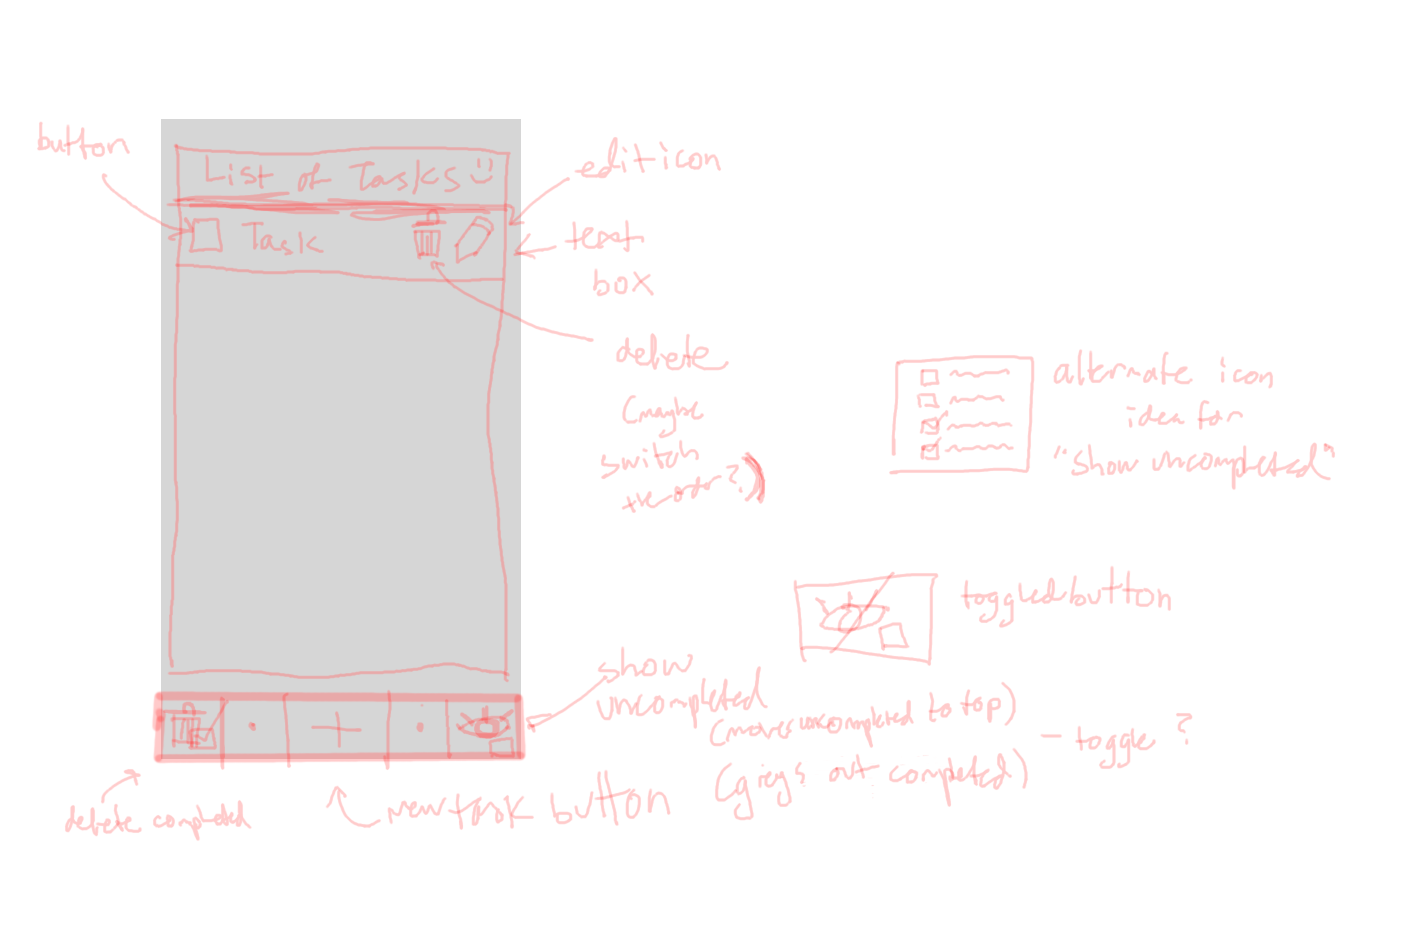 button
List of Tasks
Task
edit icon
text
box
delete
(maybe
switch
the order?)
alternate icon
idea for
"show uncompleted"
toggled button
show
uncompleted
(moves uncompleted to top)
(greys out completed)
- toggle ?
delete completed
new task button